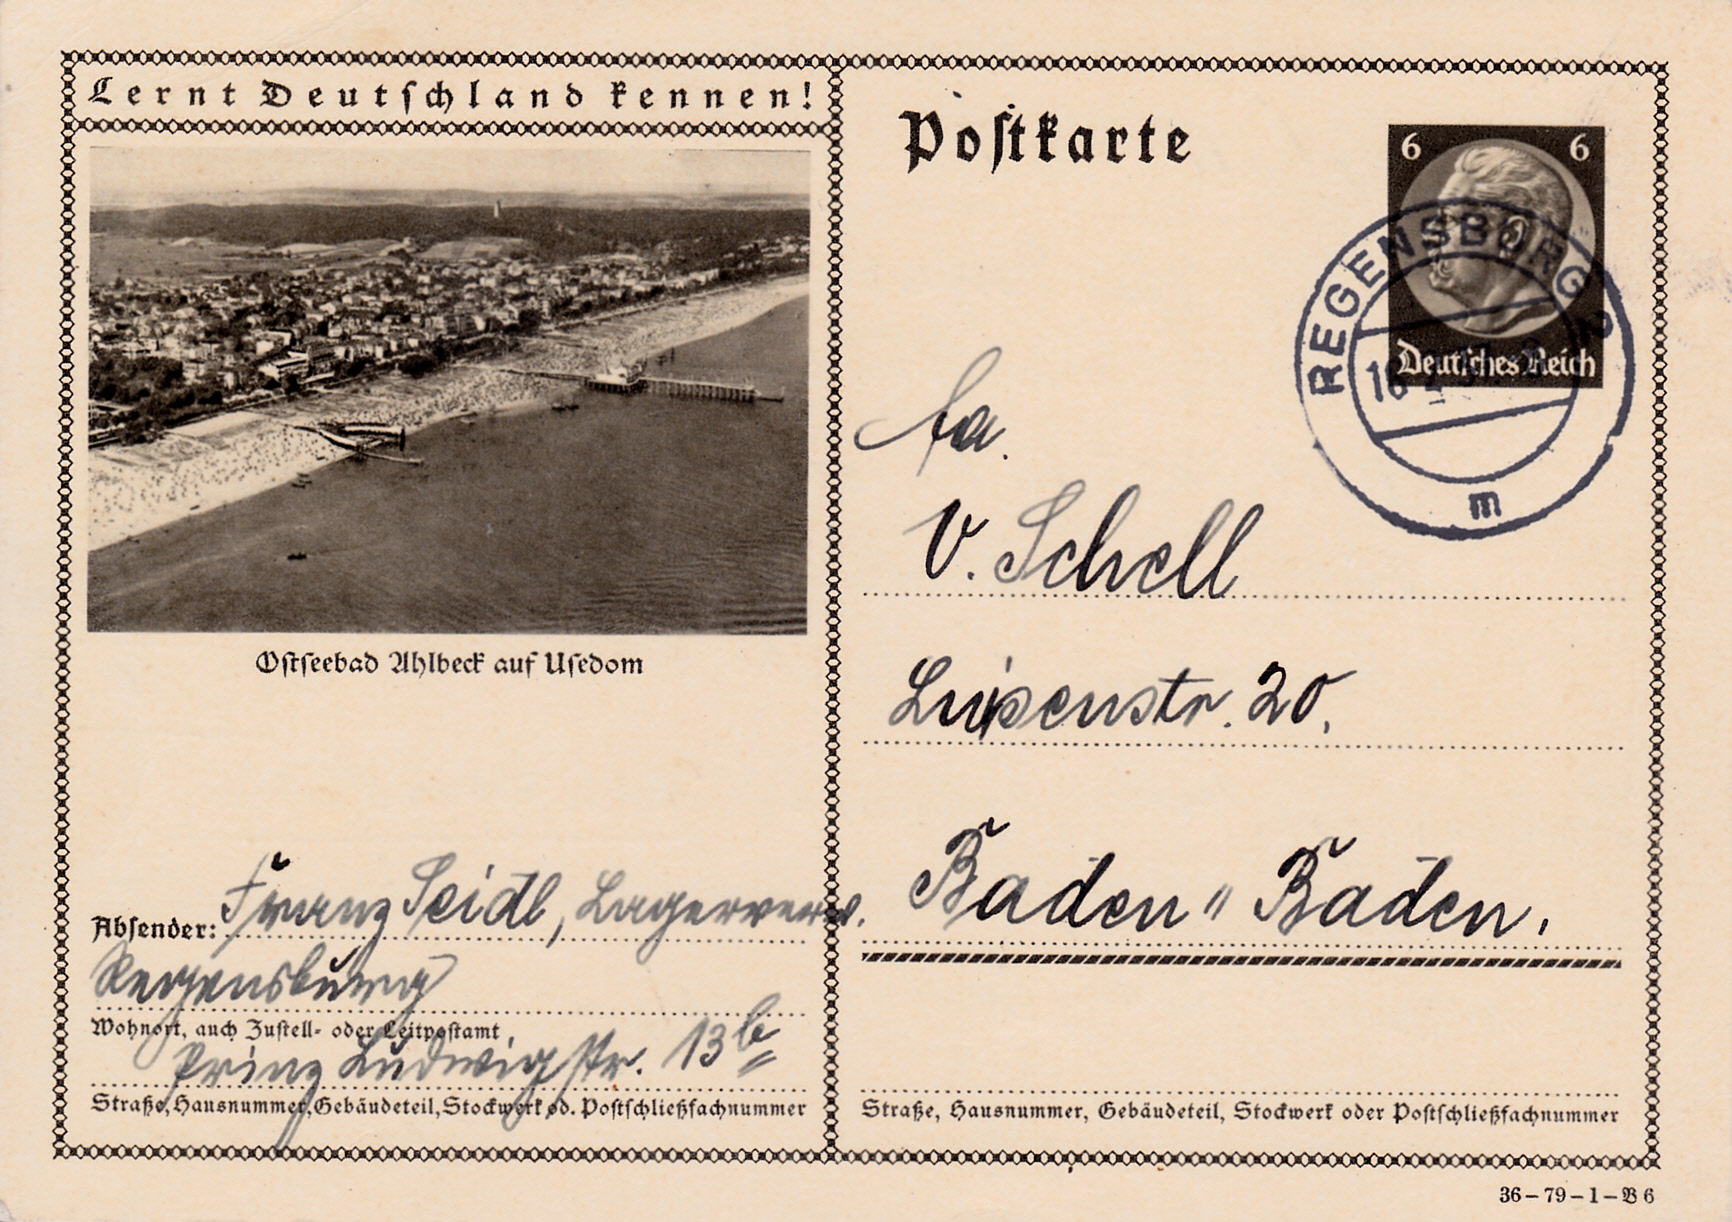 Lernt Deutschland kennen!
Ostseebad Ahlbeck auf Usedom
Absender: Franz Seidl, Lagerverw.
Regensburg
Wohnort, auch Zustell- oder Leitpostamt
Prinz Ludwigstr. 13b
Straße, Hausnummer, Gebäudeteil, Stockwerk od. Postschließfachnummer
Postkarte
6 6
Deutsches Reich
REGENSBURG 2
m
Fa.
V. Schell
Luisenstr. 20.
Baden=Baden.
Straße, Hausnummer, Gebäudeteil, Stockwerk oder Postschließfachnummer
36–79–1–B 6